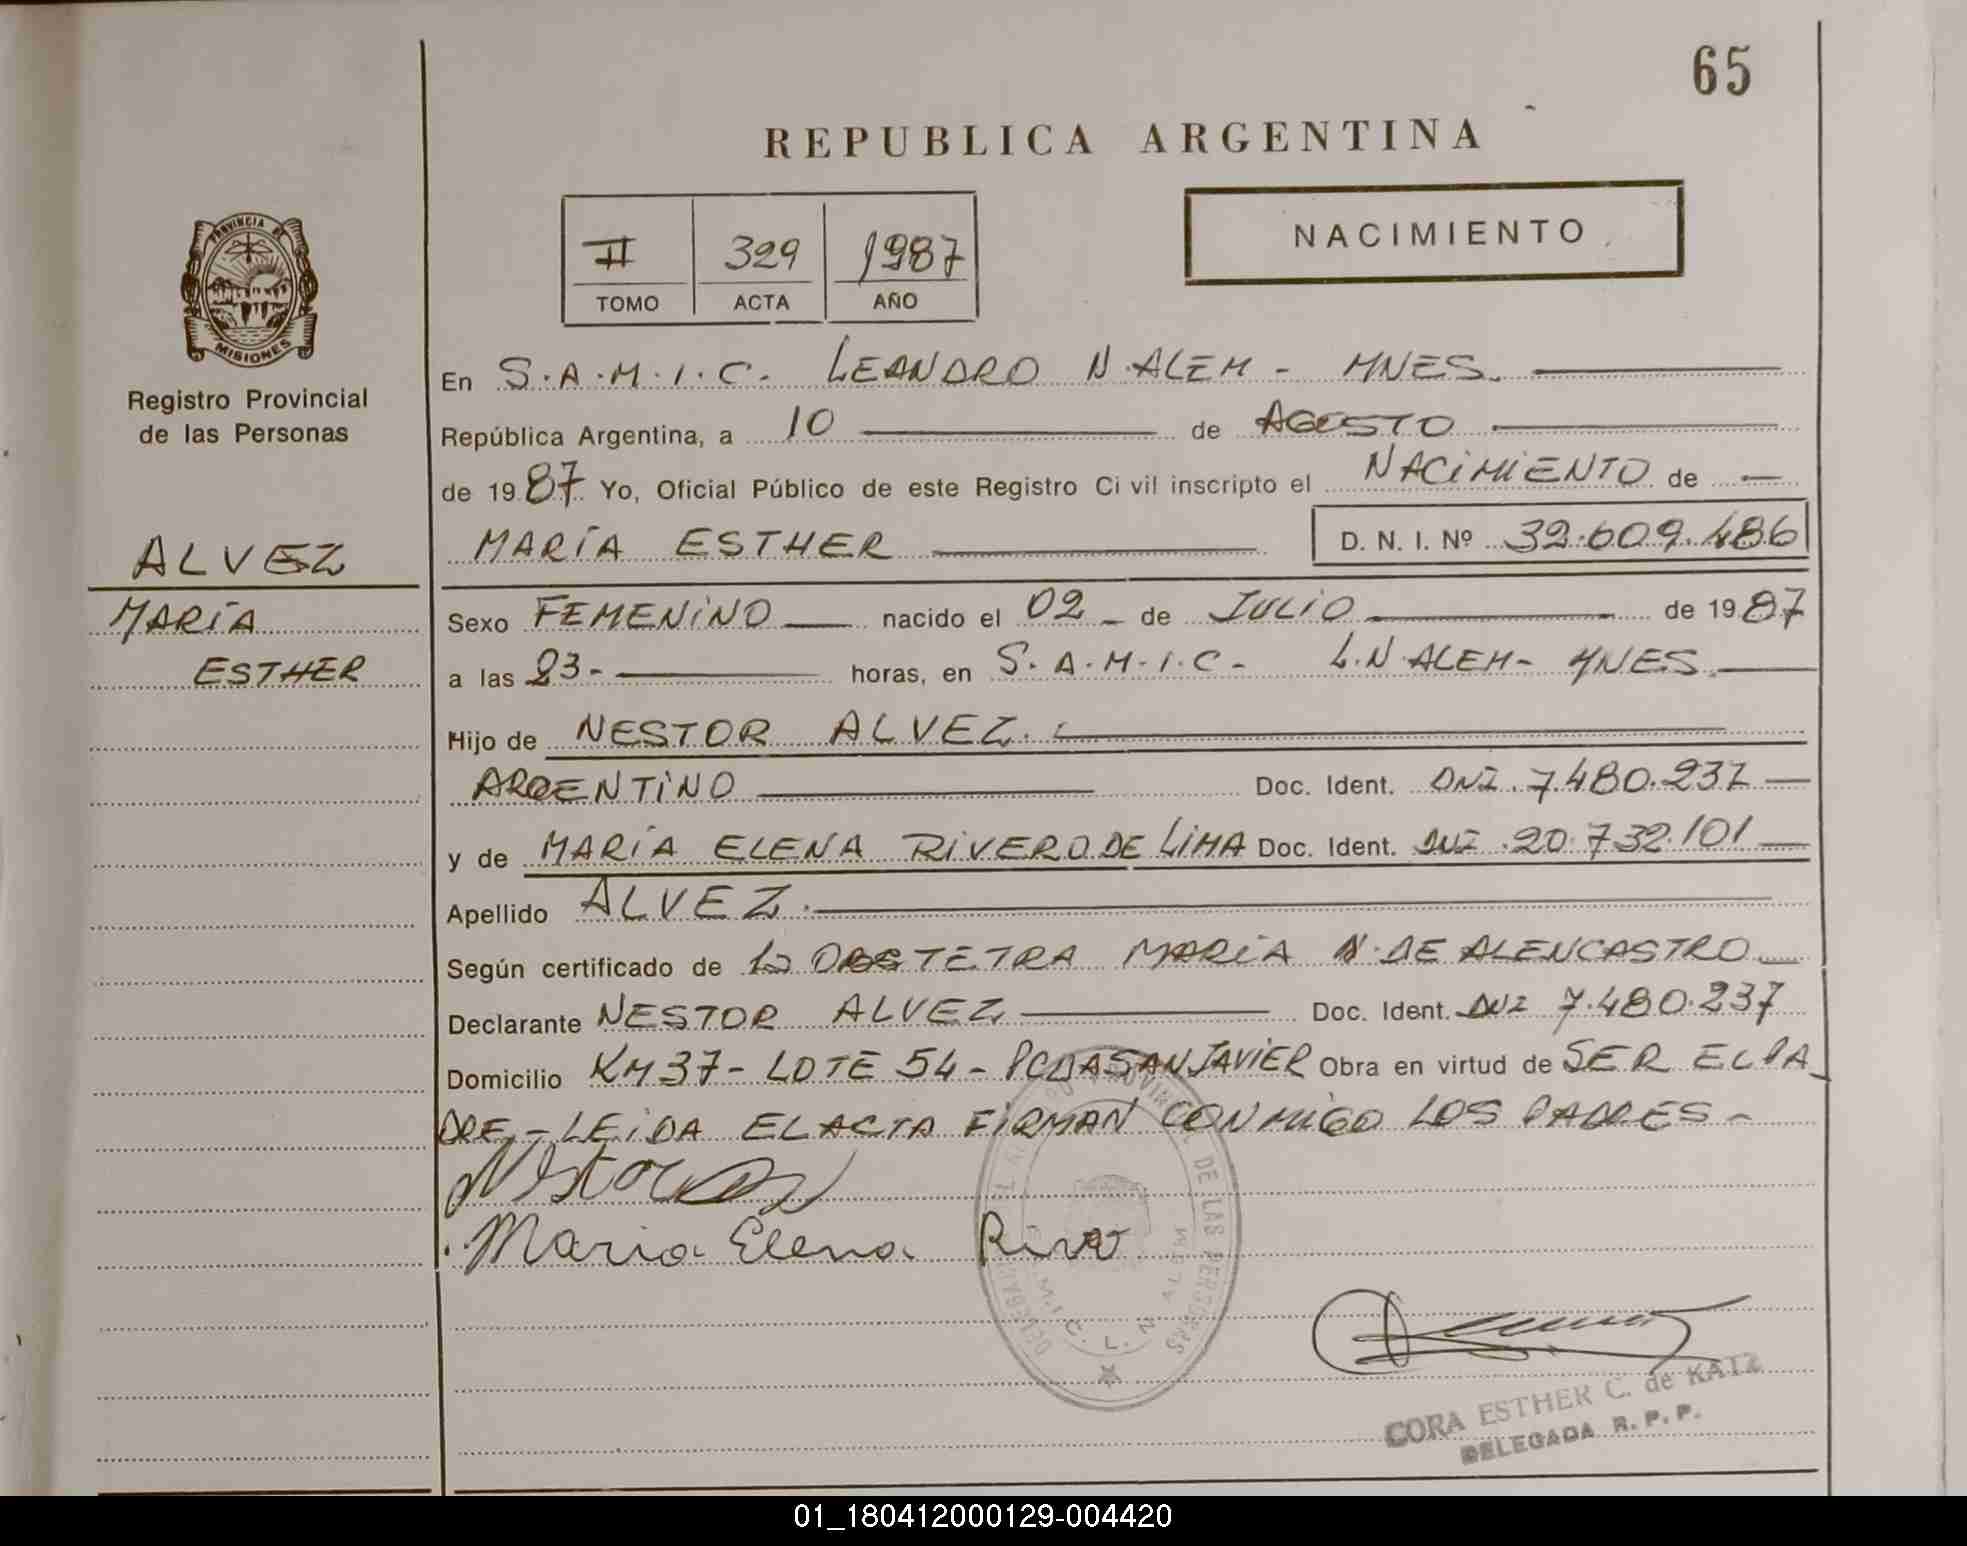 65
REPUBLICA ARGENTINA
II 329 1987
TOMO ACTA AÑO
NACIMIENTO
PROVINCIA DE
MISIONES
Registro Provincial
de las Personas
ALVEZ
MARÍA
ESTHER
En S.A.M.I.C. LEANDRO N. ALEM - MNES.
República Argentina, a 10 de AGOSTO
de 1987 Yo, Oficial Público de este Registro Civil inscripto el NACIMIENTO de —
MARÍA ESTHER D. N. I. Nº 32.609.486
Sexo FEMENINO nacido el 02 - de JULIO de 1987
a las 23- horas, en S.A.M.I.C- L.N.ALEM- MNES.
Hijo de NESTOR ALVEZ.
ARGENTINO Doc. Ident. DNI. 7.480.237 —
y de MARÍA ELENA RIVERO DE LIMA Doc. Ident. DNI. 20.732.101 —
Apellido ALVEZ.
Según certificado de la OBSTETRA MARÍA N. DE ALENCASTRO
Declarante NESTOR ALVEZ Doc. Ident. DNI 7.480.237
Domicilio KM 37- LOTE 54- PCDA SAN JAVIER Obra en virtud de SER EL PA
DRE,- LEIDA EL ACTA FIRMAN CONMIGO LOS PADRES -
Nestor
Maria Elena
DE LAS PERSONAS
S.A.M.I.C. L. N. ALEM
CORA ESTHER C. de KATZ
DELEGADA R. P. P.
01_180412000129-004420